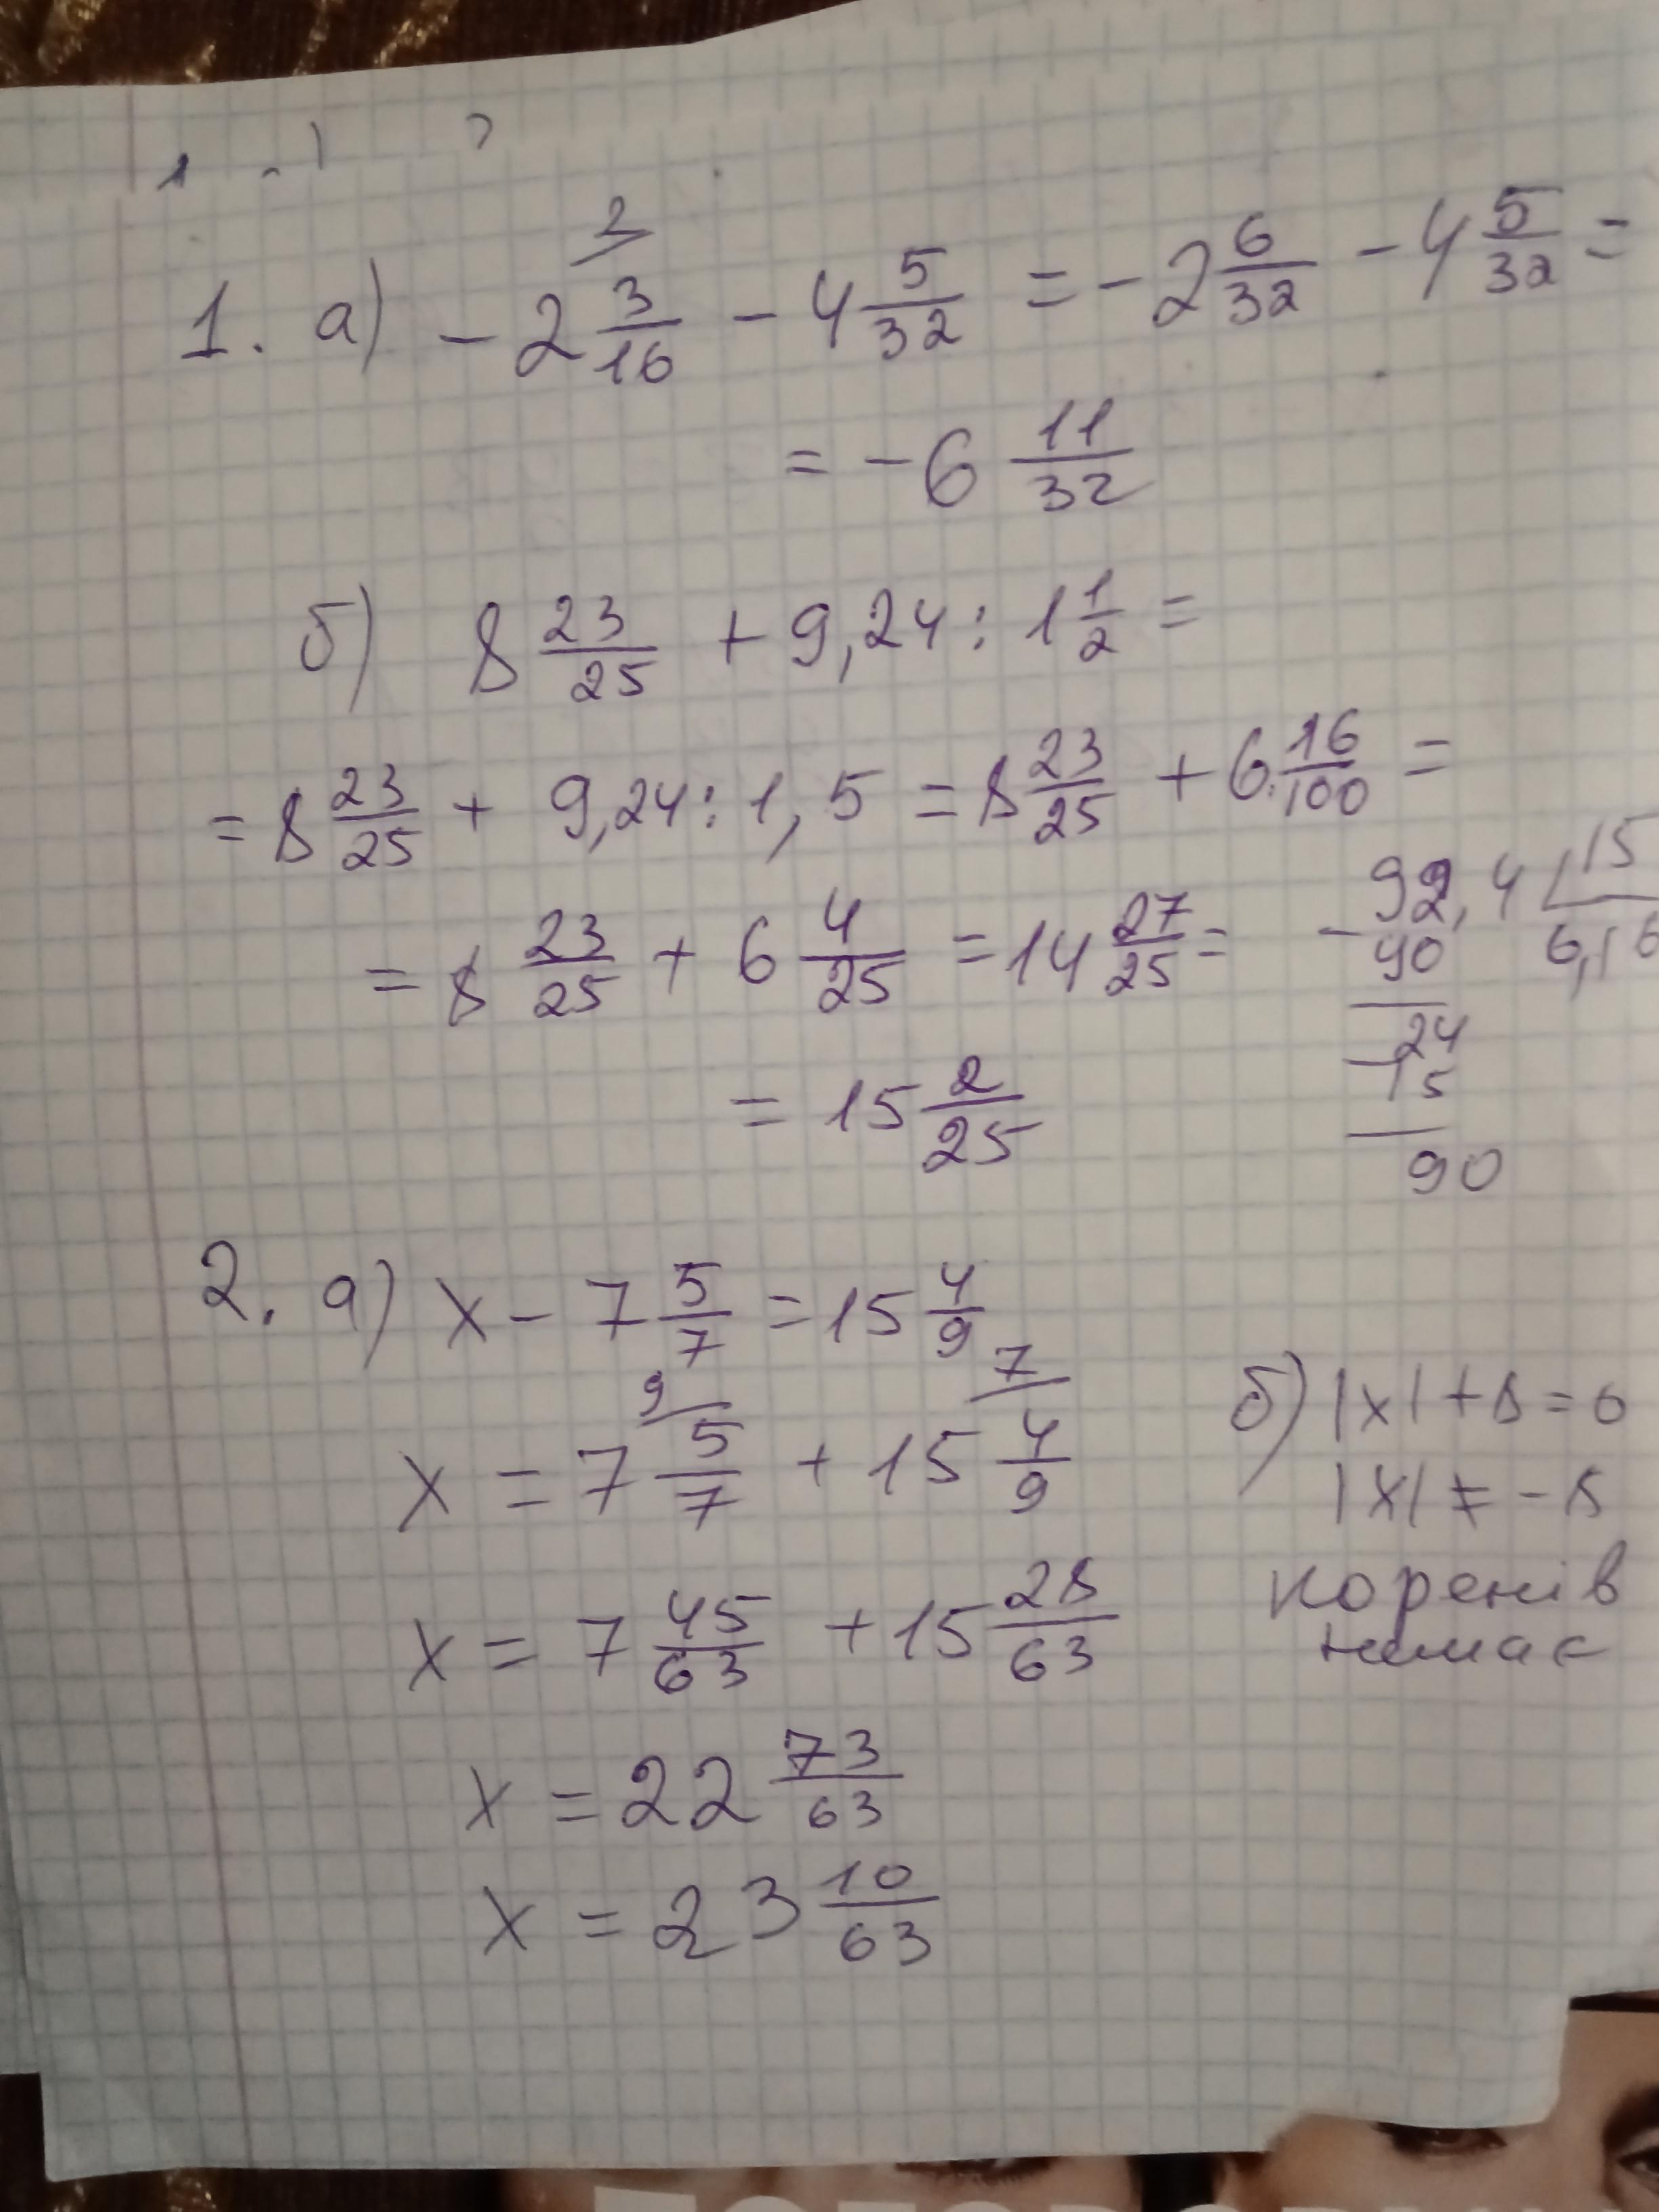 2
1. а) -2 3/16 - 4 5/32 = -2 6/32 - 4 5/32 =
= -6 11/32
б) 8 23/25 + 9,24 : 1 1/2 =
= 8 23/25 + 9,24 : 1,5 = 8 23/25 + 6 16/100 =
= 8 23/25 + 6 4/25 = 14 27/25 =
= 15 2/25
92,4 15
- 90 6,16
24
- 15
90
2. а) x - 7 5/7 = 15 4/9
9 7
x = 7 5/7 + 15 4/9
x = 7 45/63 + 15 28/63
x = 22 73/63
x = 23 10/63
б) |x| + 8 = 0
|x| ≠ -8
коренів
немає